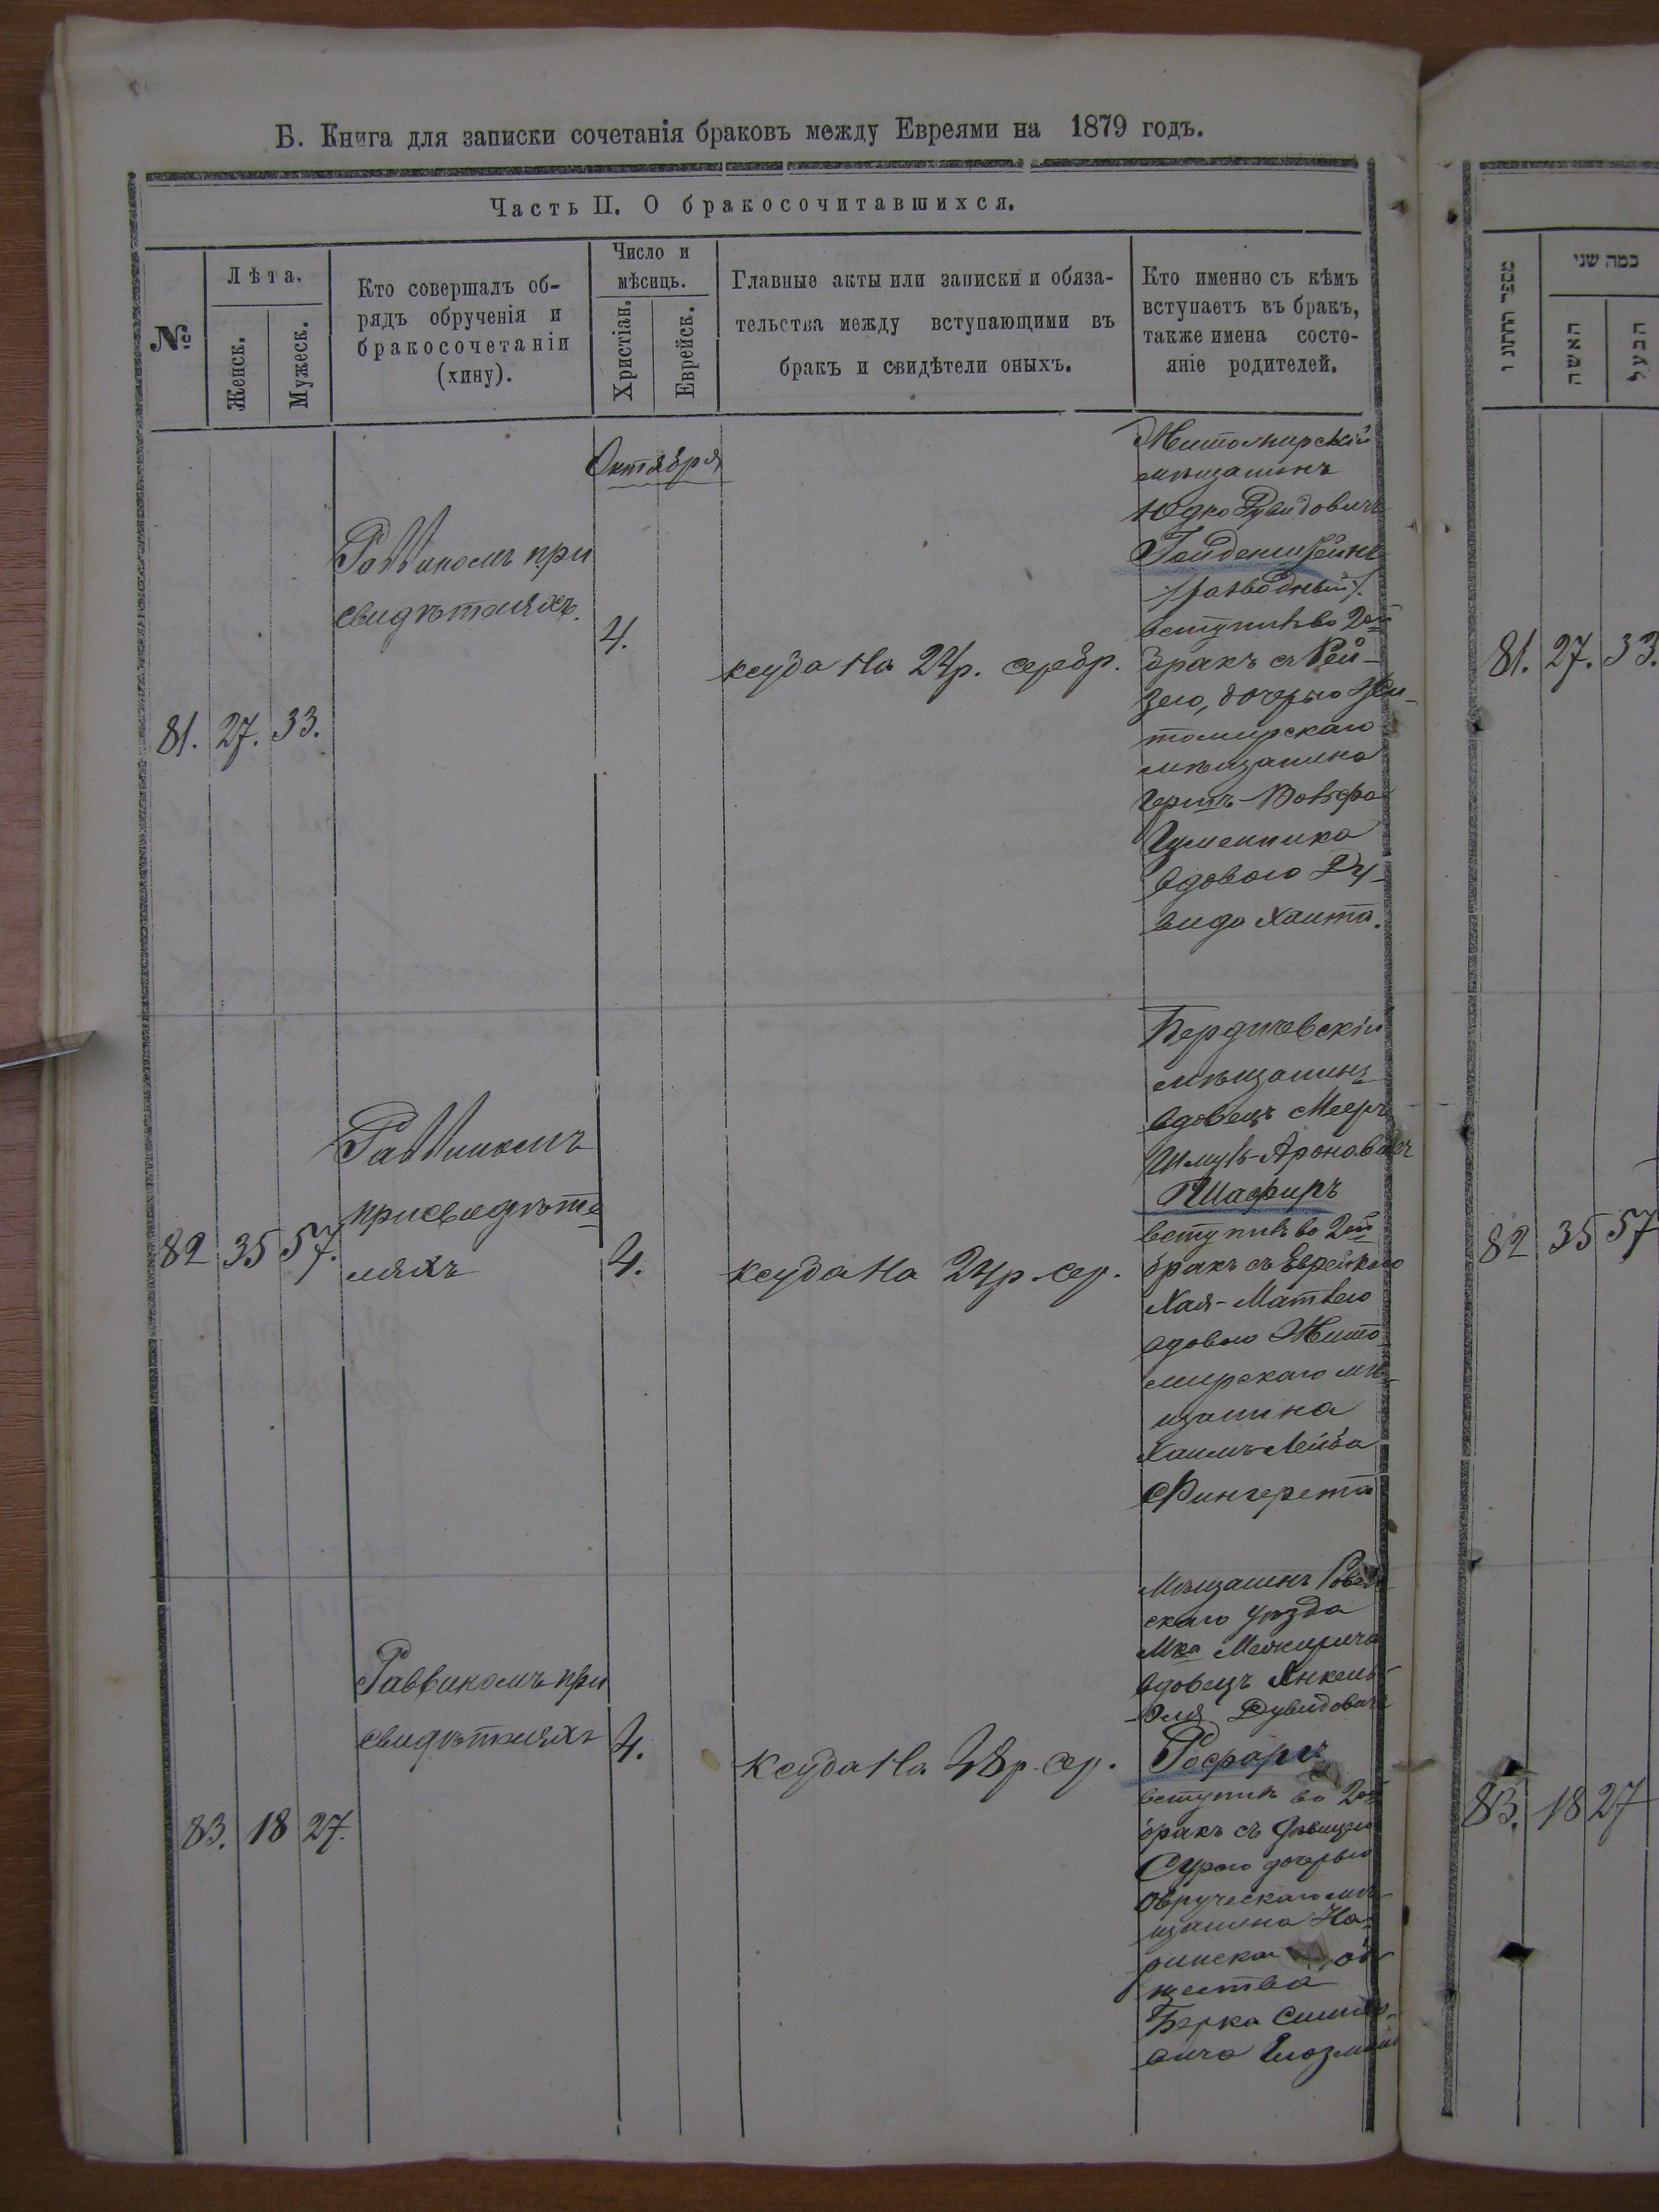 Б. Книга для записки сочетанія браковъ между Евреями на 1879 годъ.
Часть II. О бракосочитавшихся.
№
Лѣта.
Женск.
Мужеск.
Кто совершалъ об-
рядъ обрученія и
бракосочетаніи
(хину).
Число и
мѣсиць.
Христіан.
Еврейск.
Главные акты или записки и обяза-
тельства между вступающими въ
бракъ и свидѣтели оныхъ.
Кто именно съ кѣмъ
вступаетъ въ бракъ,
также имена состо-
яніе родителей.
Октября
81. 27. 33.
Раввиномъ при
свидѣтеляхъ.
4.
ксуба на 24р. серебр.
Житомирскій
мѣщанинъ
Юдко Дувидовичъ
Гольденштейнъ
/разводный/.
вступилъ во 2ой
бракъ съ Рей-
зею, дочерью Жи-
томирскаго
мѣщанина
Герш Вольфа
вдовою Ду-
вида Хаита.
82 35 57.
Раввиномъ
при свидѣте
ляхъ
4.
ксуба на 24р. сер.
Бердичевскій
мѣщанинъ
вдовецъ Мееръ
Шмуль-Ароновичъ
Шафиръ
вступилъ во 2ой
бракъ съ Еврейкою
Хая-
вдовою Жито-
мирскаго мѣ-
щанина
Хаимъ-Лейба
Фингерета
83. 18 27.
Раввиномъ при
свидѣтеляхъ
4.
ксуба на 48р. сер.
Мѣщанинъ Ровен
скаго уѣзда
Мка Межирича
вдовецъ Янкель
Дувидовичъ
Росфаръ
вступилъ во 2ой
бракъ съ дѣвицею
Сурою дочерью
Овручскаго мѣ-
щанина На-
ринска об-
щества
Берка
вича
מספר החתונו
כמה שני
האשה
הבעל
81. 27. 33.
82 35 57
83. 18 27